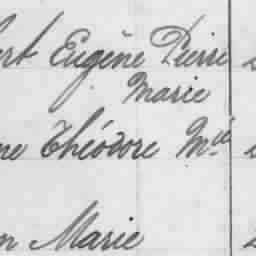 ert Eugène Pierre
Marie
ne Théodore Mie
n Marie